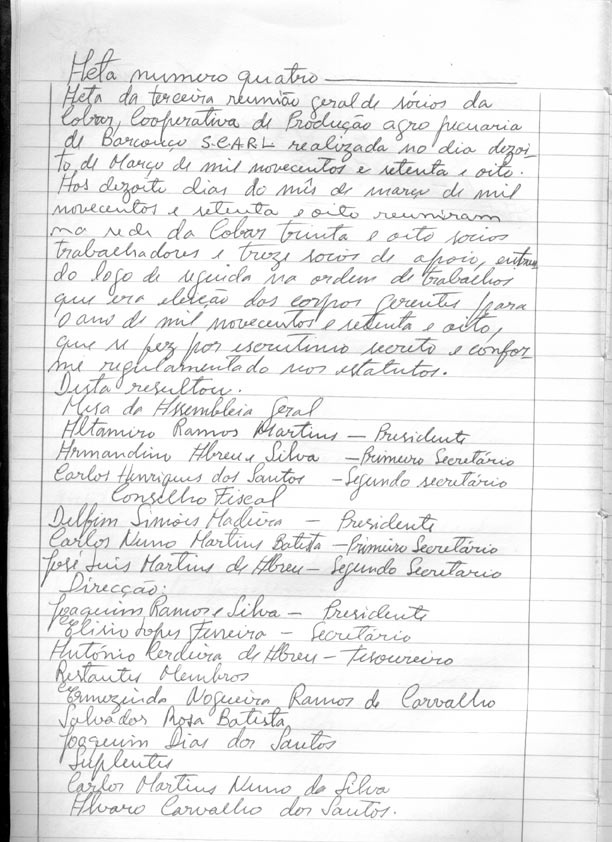 Acta numero quatro
Acta da terceira reunião geral de sócios da
Cobar, Cooperativa de Produção agro pecuaria
de Barcouço S.C.A.R.L realizada no dia dezoi-
to de Março de mil novecentos e setenta e oito.
Aos dezoito dias do mês de março de mil
novecentos e setenta e oito reuniram
na sede da Cobar trinta e oito socios
trabalhadores e treze socios de apoio, entran
do logo de seguida na ordem de trabalhos
que era eleição dos corpos gerentes para
o ano de mil novecentos e setenta e oito,
que se fez por escrutinio secreto e confor
me regulamentado nos estatutos.
Desta resultou.
Mesa da Assembleia Geral
Altamiro Ramos Martins – Presidente
Armandino Abreu e Silva – Primeiro Secretário
Carlos Henriques dos Santos – Segundo secretário
Conselho Fiscal
Delfim Simões Madeira – Presidente
Carlos Nuno Martins Batista – Primeiro Secretário
José Luis Martins de Abreu – Segundo Secretario
Direcção:
Joaquim Ramos e Silva – Presidente
Elisio Lopes Ferreira – Secretário
António Cerdeira de Abreu – Tesoureiro
Restantes Membros
Ermezinda Nogueira Ramos de Carvalho
Salvador Rosa Batista
Joaquim Dias dos Santos
Suplentes
Carlos Martins Nuno da Silva
Alvaro Carvalho dos Santos.